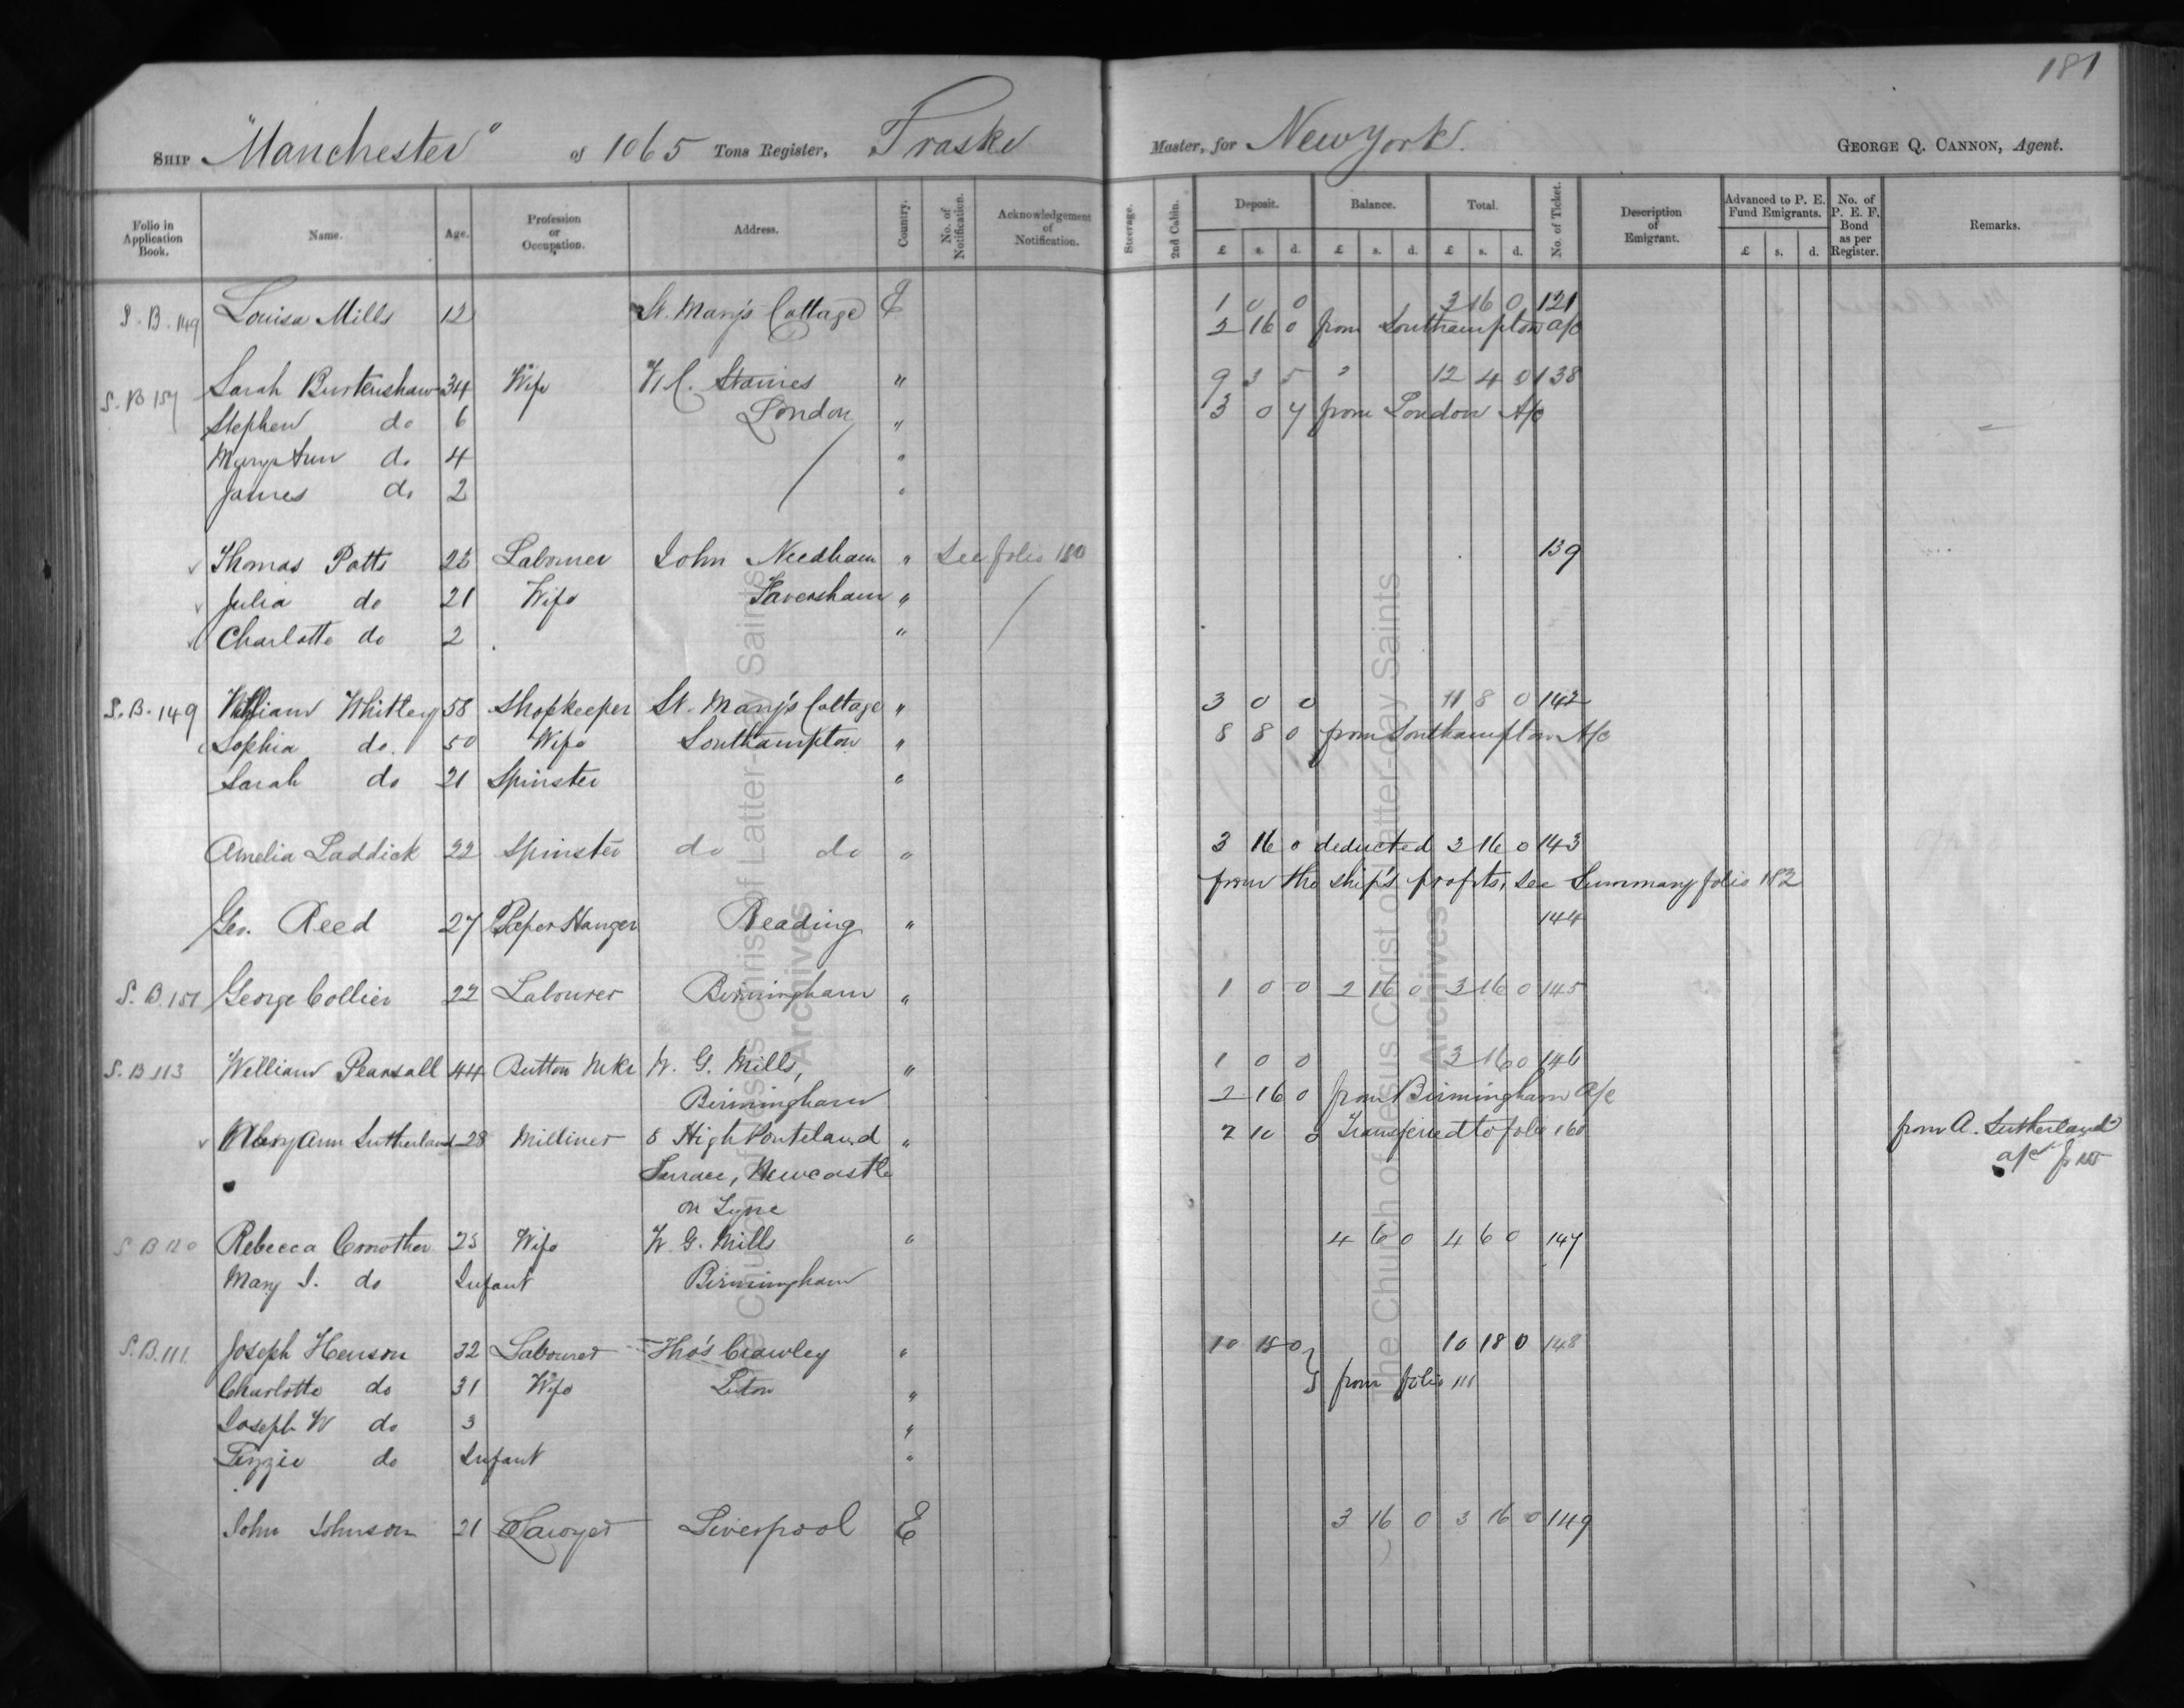 181
SHIP "Manchester" of 1065 Tons Register, Traske Master, for New York. GEORGE Q. CANNON, Agent.
Folio in Application Book. Name. Age. Profession or Occupation. Address. Country. No. of Notification. Acknowledgement of Notification. Steerage. 2nd Cabin. Deposit. Balance. Total. No. of Ticket. Description of Emigrant. Advanced to P. E. Fund Emigrants. No. of P. E. F. Bond as per Register. Remarks.
£ s. d. £ s. d. £ s. d. £ s. d.
S. B. 149 Louisa Mills 12 St. Mary's Cottage E 1 0 0 3 16 0 121
2 16 0 from Southampton a/c
S. B 157 Sarah Burtenshaw 34 Wife W C. Staines " 9 3 5 " 12 4 0 138
Stephen do 6 London " 3 0 7 from London A/c
Mary Ann do 4 "
James do 2 "
Thomas Potts 22 Labourer John Needham " See folio 180 139
Julia do 21 Wife Faversham "
Charlotte do 2 "
S. B. 149 William Whitley 58 Shopkeeper St. Mary's Cottage " 3 0 0 11 8 0 142
Sophia do. 50 Wife Southampton " 8 8 0 from Southampton A/c
Sarah do 21 Spinster "
Amelia Laddick 22 Spinster do do " 3 16 0 deducted 3 16 0 143
from the ship's profits, see Summary folio 182
Geo. Reed 27 Paper Hanger Reading " 144
S. B. 151 George Collier 22 Labourer Birmingham " 1 0 0 2 16 0 3 16 0 145
S. B 113 William Pearsall 44 Button Mkr W. G. Mills, " 1 0 0 3 16 0 146
Birmingham 2 16 0 from Birmingham a/c
Mary Ann Sutherland 28 Milliner 5 High Ponteland " 2 10 0 Transferred to folio 160 from A. Sutherland
Terrace, Newcastle a/c
on Tyne
S B 120 Rebecca Crowther 23 Wife W. G. Mills " 4 6 0 4 6 0 147
Mary I. do Infant Birmingham
S. B. 111. Joseph Henson 32 Labourer Tho's Crawley " 10 18 0 10 18 0 148
Charlotte do 31 Wife Luton " from folio 111
Joseph W do 3 "
Lizzie do Infant "
John Johnson 21 Sawyer Liverpool E 3 16 0 3 16 0 149
The Church of Jesus Christ of Latter-day Saints
Archives
The Church of Jesus Christ of Latter-day Saints
Archives